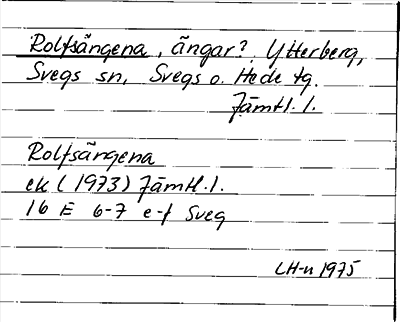 Rolfsängena, ängar? Ytterberg,
Svegs sn, Svegs o. Hede tg.
Jämtl. l.
Rolfsängena
ek (1973) Jämtl. l.
16 E 6-7 e-f Sveg
LH-n 1975